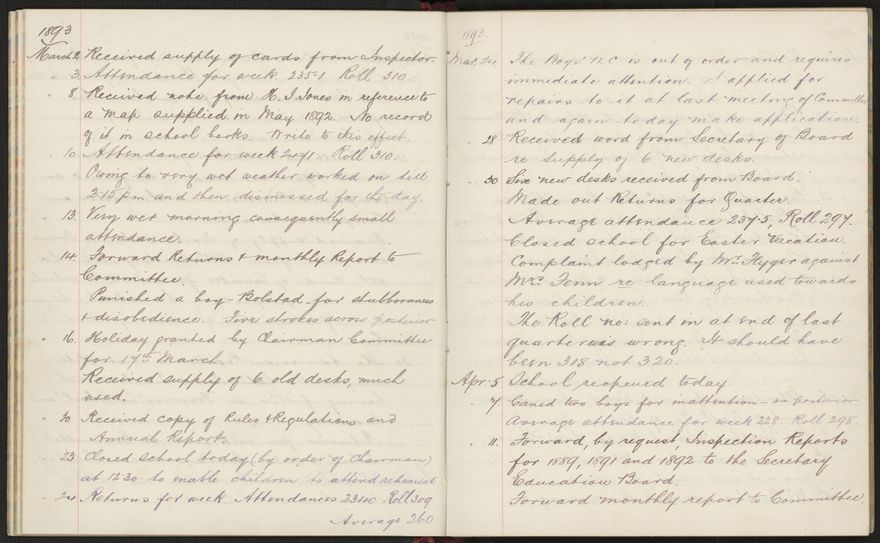 1893
March 2 Received supply of cards from Inspector.
" 3. Attendance for week 235·1 Roll 310.
" 8. Received note from H. J. Jones in reference to
a map supplied in May 1892. No record
of it in school books. Write to this effect.
" 10 Attendance for week 247·1. Roll 310.
Owing to very wet weather worked on till
2·15 pm and then dismissed for the day.
" 13. Very wet morning consequently small
attendance.
" 14. Forward Returns & monthly Report to
Committee.
Punished a boy - Bolstad - for stubbornness
& disobedience. Five strokes across posterior
" 16. Holiday granted by Chairman Committee
for 17th March.
Received supply of 6 old desks, much
used.
" 20 Received copy of Rules & Regulations and
Annual Report.
" 23 Closed school today (by order of Chairman)
at 12·30 to enable children to attend rehearsal
" 24. Returns for week Attendances 2340 Roll 309
Average 260
1893.
Mar. 24 The Boys' W.C is out of order and requires
immediate attention. I applied for
repairs to it at last meeting of Committee
and again today make application.
" 28 Received word from Secretary of Board
re supply of 6 new desks.
" 30 Six new desks received from Board.
Made out Returns for Quarter.
Average attendance 237·5, Roll 297.
Closed school for Easter Vacation.
Complaint lodged by Mrs. Flyger against
Mrs. Fenn re language used towards
his children.
The Roll no: sent in at end of last
quarter was wrong. It should have
been 318 not 320.
Apr. 5 School reopened today.
" 7. Caned two boys for inattention - on posterior
Average attendance for week 228. Roll 298.
" 11. Forward, by request, Inspection Reports
for 1889, 1891 and 1892 to the Secretary
Education Board.
Forward monthly report to Committee.